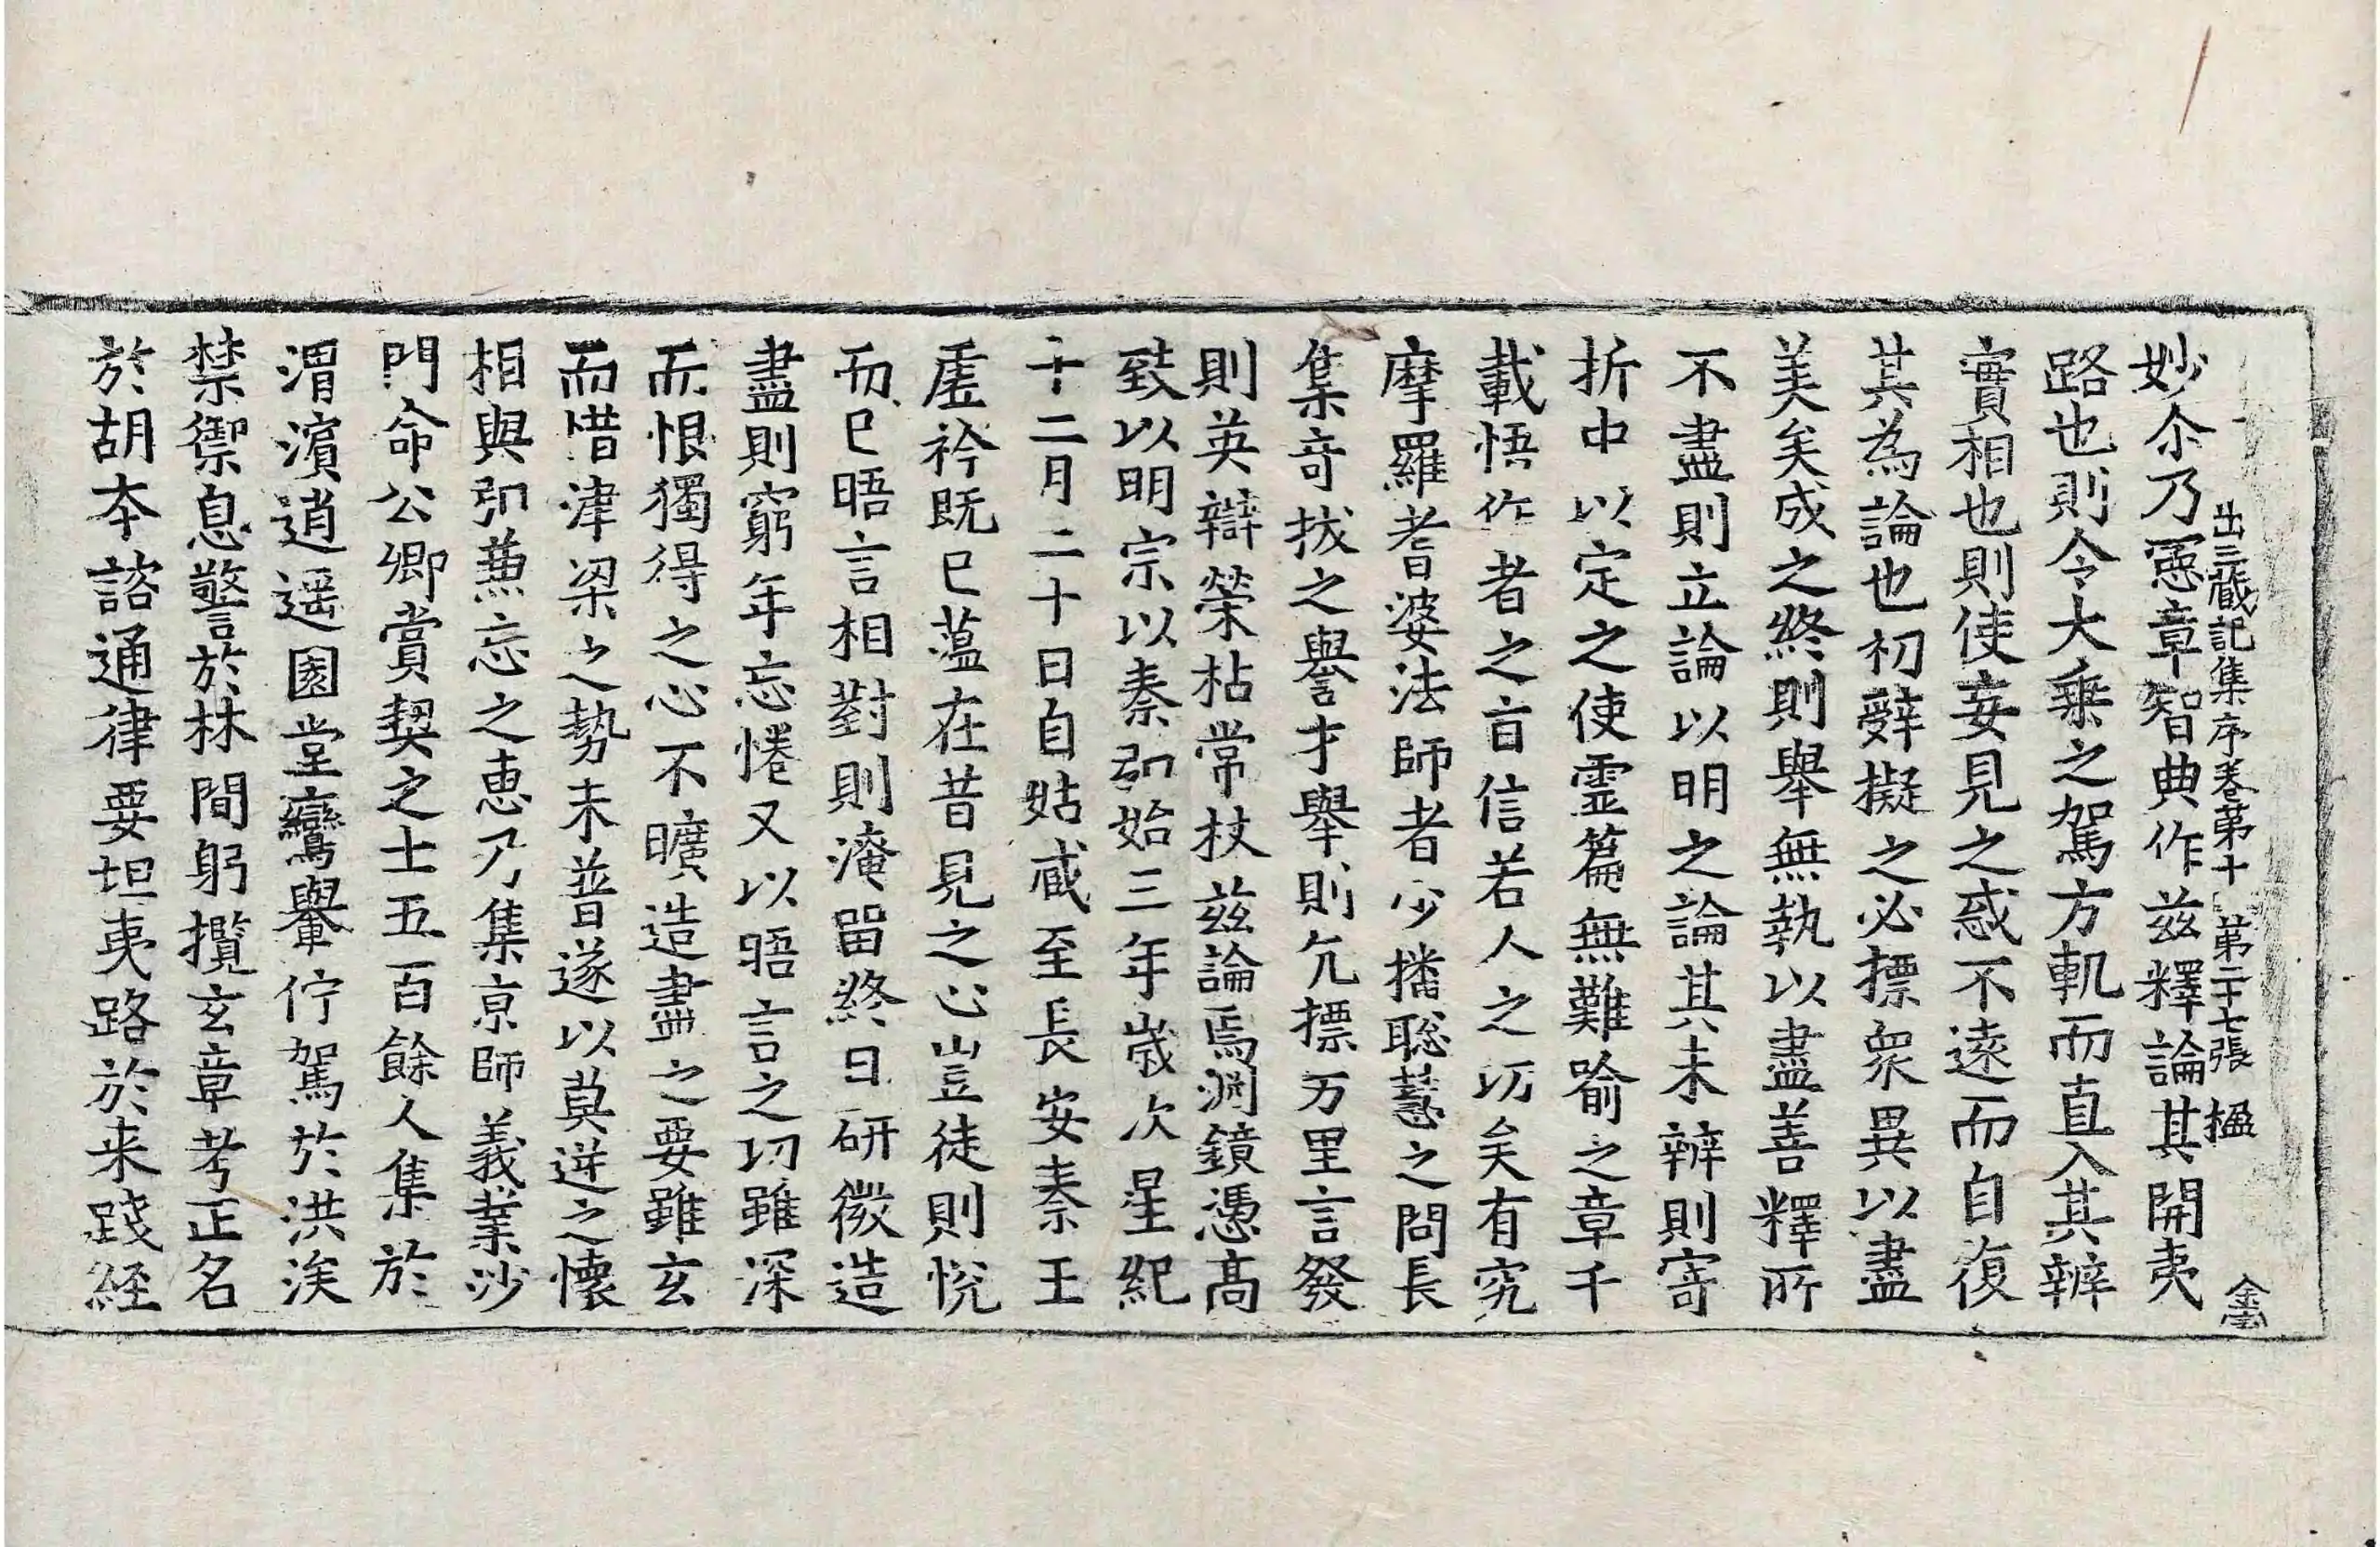 出三藏記集序卷苐十 苐二十七張 楹
妙尒乃憲章智典作兹釋論其開夷
路也則令大乘之駕方軌而直入其辨
實相也則使妄見之惑不遠而自復
其為論也初辝擬之必摽衆異以盡
美矣成之終則舉無執以盡善釋所
不盡則立論以明之論其未辨則寄
折中以定之使霊篇無難喻之章千
載悟作者之旨信若人之㓛矣有究
摩羅耆婆法師者少播聡慧之問長
集竒拔之譽才舉則亢摽万里言發
則英辯榮枯常杖兹論焉渕鏡憑髙
致以明宗以秦弘始三年歲次星紀
十二月二十日自姑臧至長安秦王
虚衿既已藴在昔見之心豈徒則悅
而已晤言相對則淹留終日研微造
盡則窮年忘惓又以晤言之㓛雖深
而恨獨得之心不曠造盡之要雖玄
而惜津梁之勢未普遂以莫逆之懷
相與弘兼忘之惠乃集京師義業沙
門命公卿賞契之士五百餘人集於
渭濵逍遥園堂鸞轝佇駕於洪涘
禁禦息警於林間躬攬玄章考正名
於胡本諮通律要坦夷路於来踐經